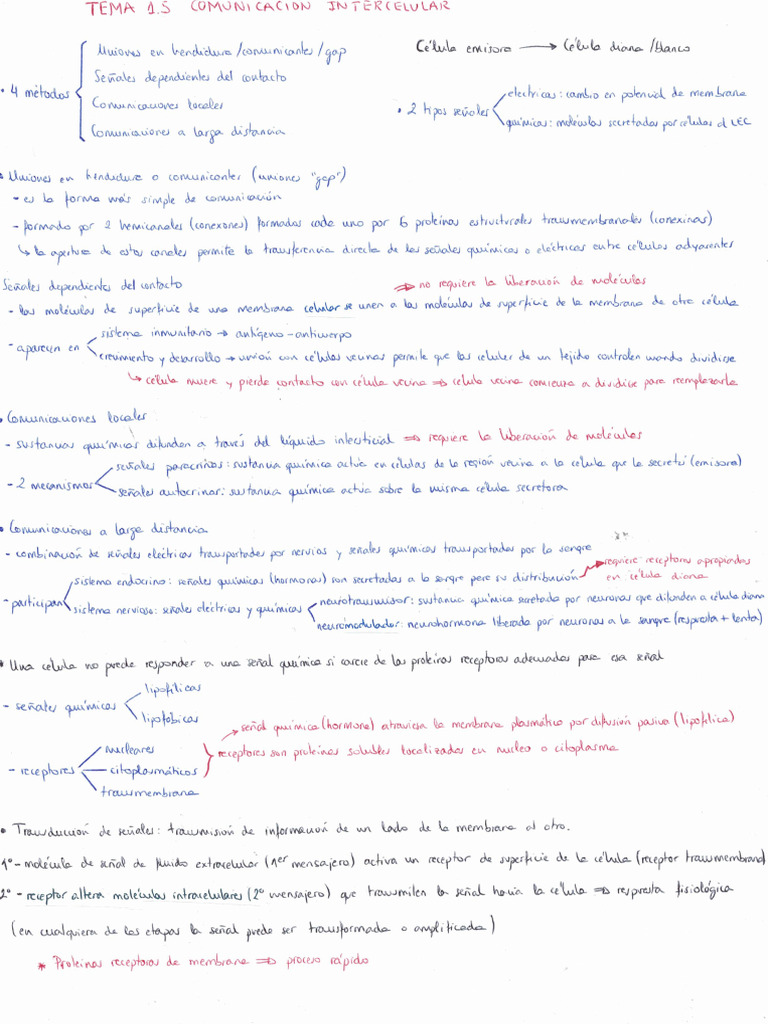 TEMA 1.5 COMUNICACION INTERCELULAR
Uniones en hendidura/comunicantes/gap
Célula emisora → Célula diana/blanco
Señales dependientes del contacto
• 4 métodos
Comunicaciones locales
Comunicaciones a larga distancia
• 2 tipos señales
electricas: cambio en potencial de membrana
químicas: moléculas secretadas por células al LEC
• Uniones en hendidura o comunicantes (uniones "gap")
- es la forma más simple de comunicación
- formado por 2 hemicanales (conexones) formados cada uno por 6 proteinas estructurales transmembranales (conexinas)
↳ la apertura de estos canales permite la transferencia directa de las señales químicas o eléctricas entre células adyacentes
Señales dependientes del contacto
⇒ no requiere la liberación de moléculas
- las moléculas de superficie de una membrana celular se unen a las moléculas de superficie de la membrana de otra célula
- aparecen en
sistema inmunitario → antígeno-anticuerpo
crecimiento y desarrollo → unión con células vecinas permite que las celulas de un tejido controlen cuando dividirse
↳ célula muere y pierde contacto con célula vecina ⇒ celula vecina comienza a dividirse para reemplazarla
• Comunicaciones locales
- sustancias químicas difunden a través del líquido intersticial ⇒ requiere la liberación de moléculas
- 2 mecanismos
señales paracrinas: sustancia química actúa en células de la región vecina a la célula que la secretó (emisora)
señales autocrinas: sustancia química actúa sobre la misma célula secretora
• Comunicaciones a larga distancia
- combinación de señales eléctricas transportadas por nervios y señales químicas transportadas por la sangre
- participan
sistema endocrino: señales químicas (hormonas) son secretadas a la sangre para su distribución
→ requiere receptores apropiados en célula diana
sistema nervioso: señales eléctricas y químicas
neurotransmisor: sustancia química secretada por neuronas que difunden a célula diana
neuromodulador: neurohormona liberada por neuronas a la sangre (respuesta + lenta)
* Una celula no puede responder a una señal química si carece de las proteinas receptoras adecuadas para esa señal
- señales químicas
lipofílicas
lipofóbicas
- receptores
nucleares
citoplasmáticos
transmembrana
→ señal química (hormona) atraviesa la membrana plasmática por difusión pasiva (lipofílica)
receptores son proteinas solubles localizadas en nucleo o citoplasma
• Transducción de señales: transmisión de información de un lado de la membrana al otro.
1º - molécula de señal de fluido extracelular (1er mensajero) activa un receptor de superficie de la célula (receptor transmembrana)
2º - receptor altera moléculas intracelulares (2º mensajero) que transmiten la señal hacia la célula ⇒ respuesta fisiológica
(en cualquiera de las etapas la señal puede ser transformada o amplificada)
* Proteinas receptoras de membrana ⇒ proceso rápido